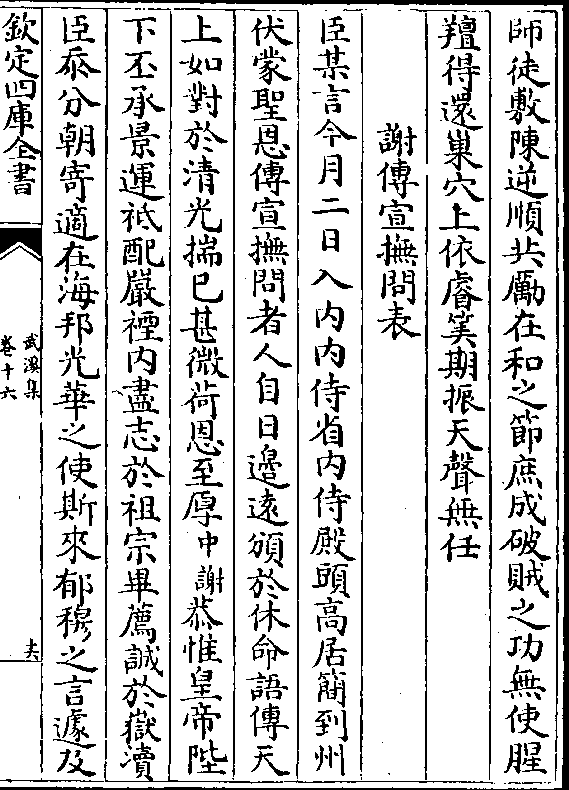 師徒敷陳逆順共勵在和之節庶成破賊之功無使腥
羶得還巢穴上依睿筭期振天聲無任
謝傳宣撫問表
臣某言今月二日入内内侍省内侍殿頭高居簡到州
伏蒙聖恩傳宣撫問者人自日邉逺頒於休命語傳天
上如對於清光揣已甚微荷恩至厚中謝恭惟皇帝陛
下丕承景運祗配嚴禋内盡志於祖宗畢薦誠於嶽瀆
臣忝分朝寄適在海邦光華之使斯來郁穆之言遽及
欽定四庫全書
武溪集
卷十六
夫